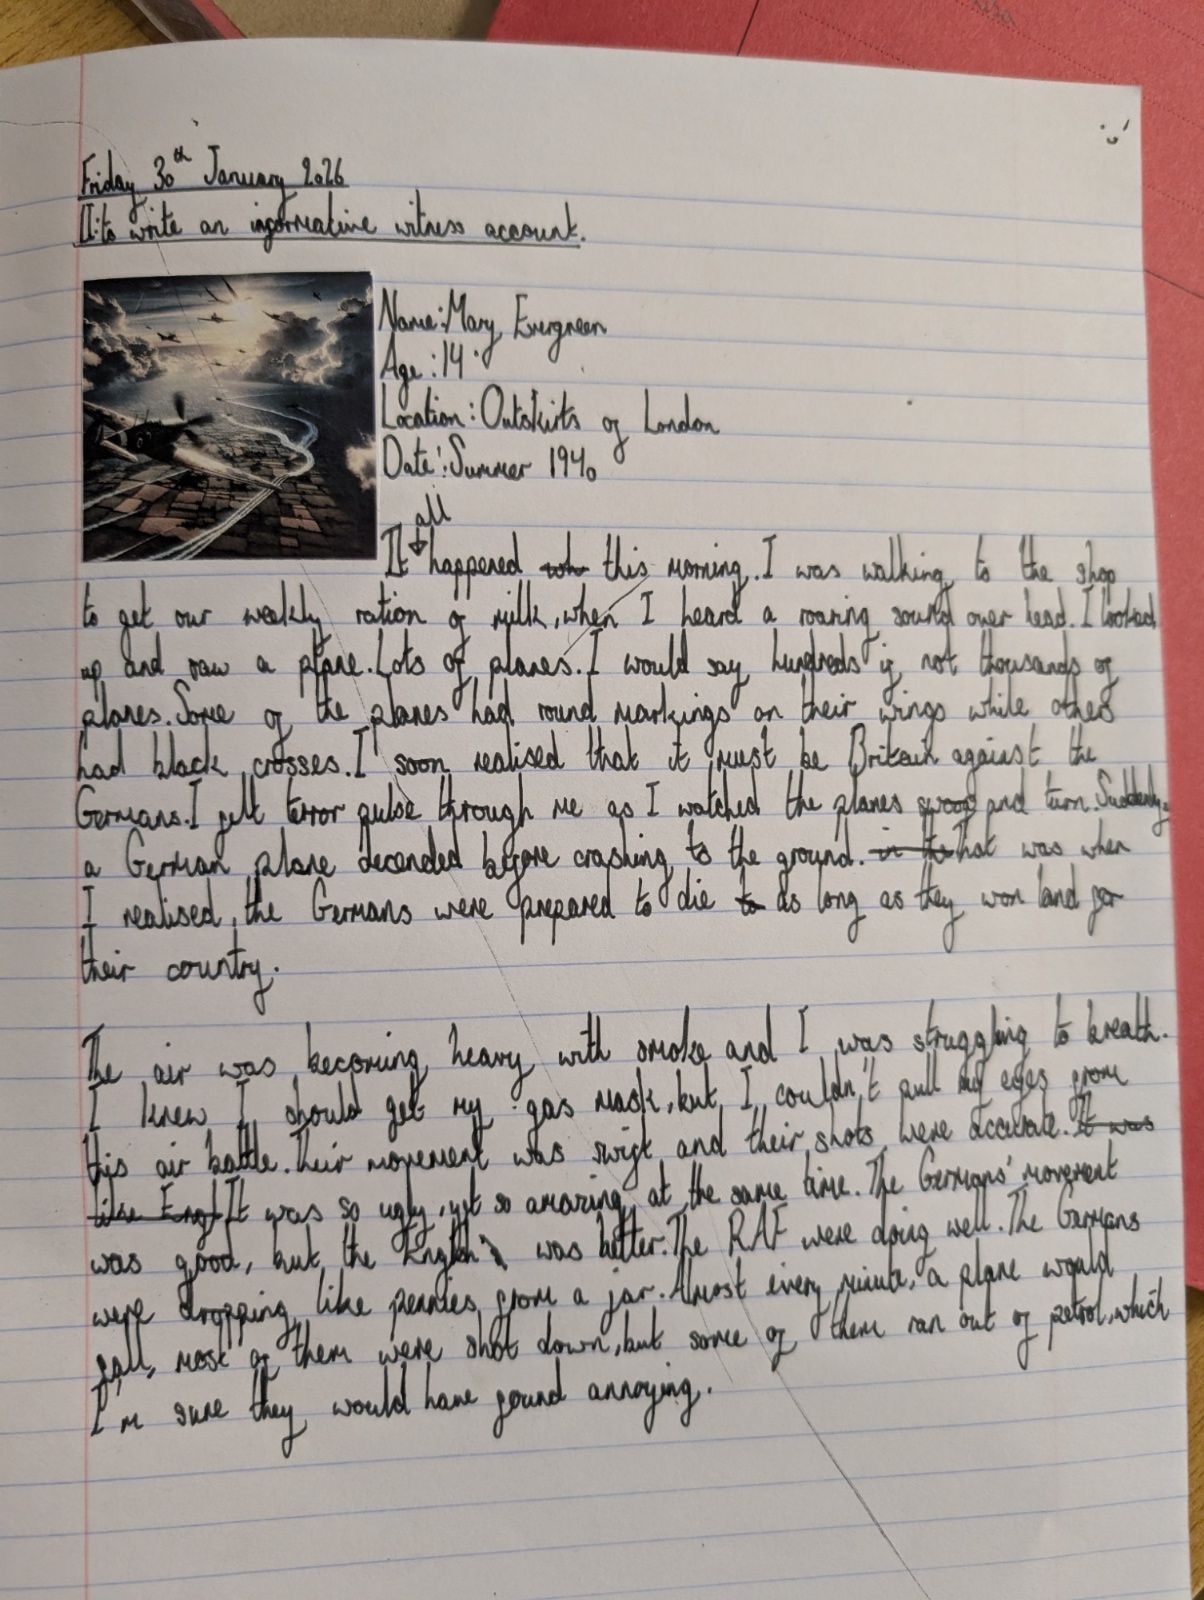 Friday 30th January 2026
LI: to write an informative witness account.
Name: Mary Evergreen
Age: 14
Location: Outskirts of London
Date: Summer 1940
all
It happened this morning. I was walking to the shop
to get our weekly ration of milk, when I heard a roaring sound over head. I looked
up and saw a plane. Lots of planes. I would say hundreds if not thousands of
planes. Some of the planes had round markings on their wings while others
had black crosses. I soon realised that it must be Britain against the
Germans. I felt terror pulse through me as I watched the planes swoop and turn. Suddenly,
a German plane decended before crashing to the ground. in that was when
I realised, the Germans were prepared to die to as long as they won land for
their country.
The air was becoming heavy with smoke and I was struggling to breath.
I knew I should get my gas mask, but I couldn't pull my eyes from
this air battle. Their movement was swift and their shots were accurate. It was
like Engl It was so ugly, yet so amazing at the same time. The Germans' movement
was good, but the English was better. The RAF were doing well. The Germans
were dropping like pennies from a jar. Almost every minute, a plane would
fall, most of them were shot down, but some of them ran out of petrol, which
I'm sure they would have found annoying.